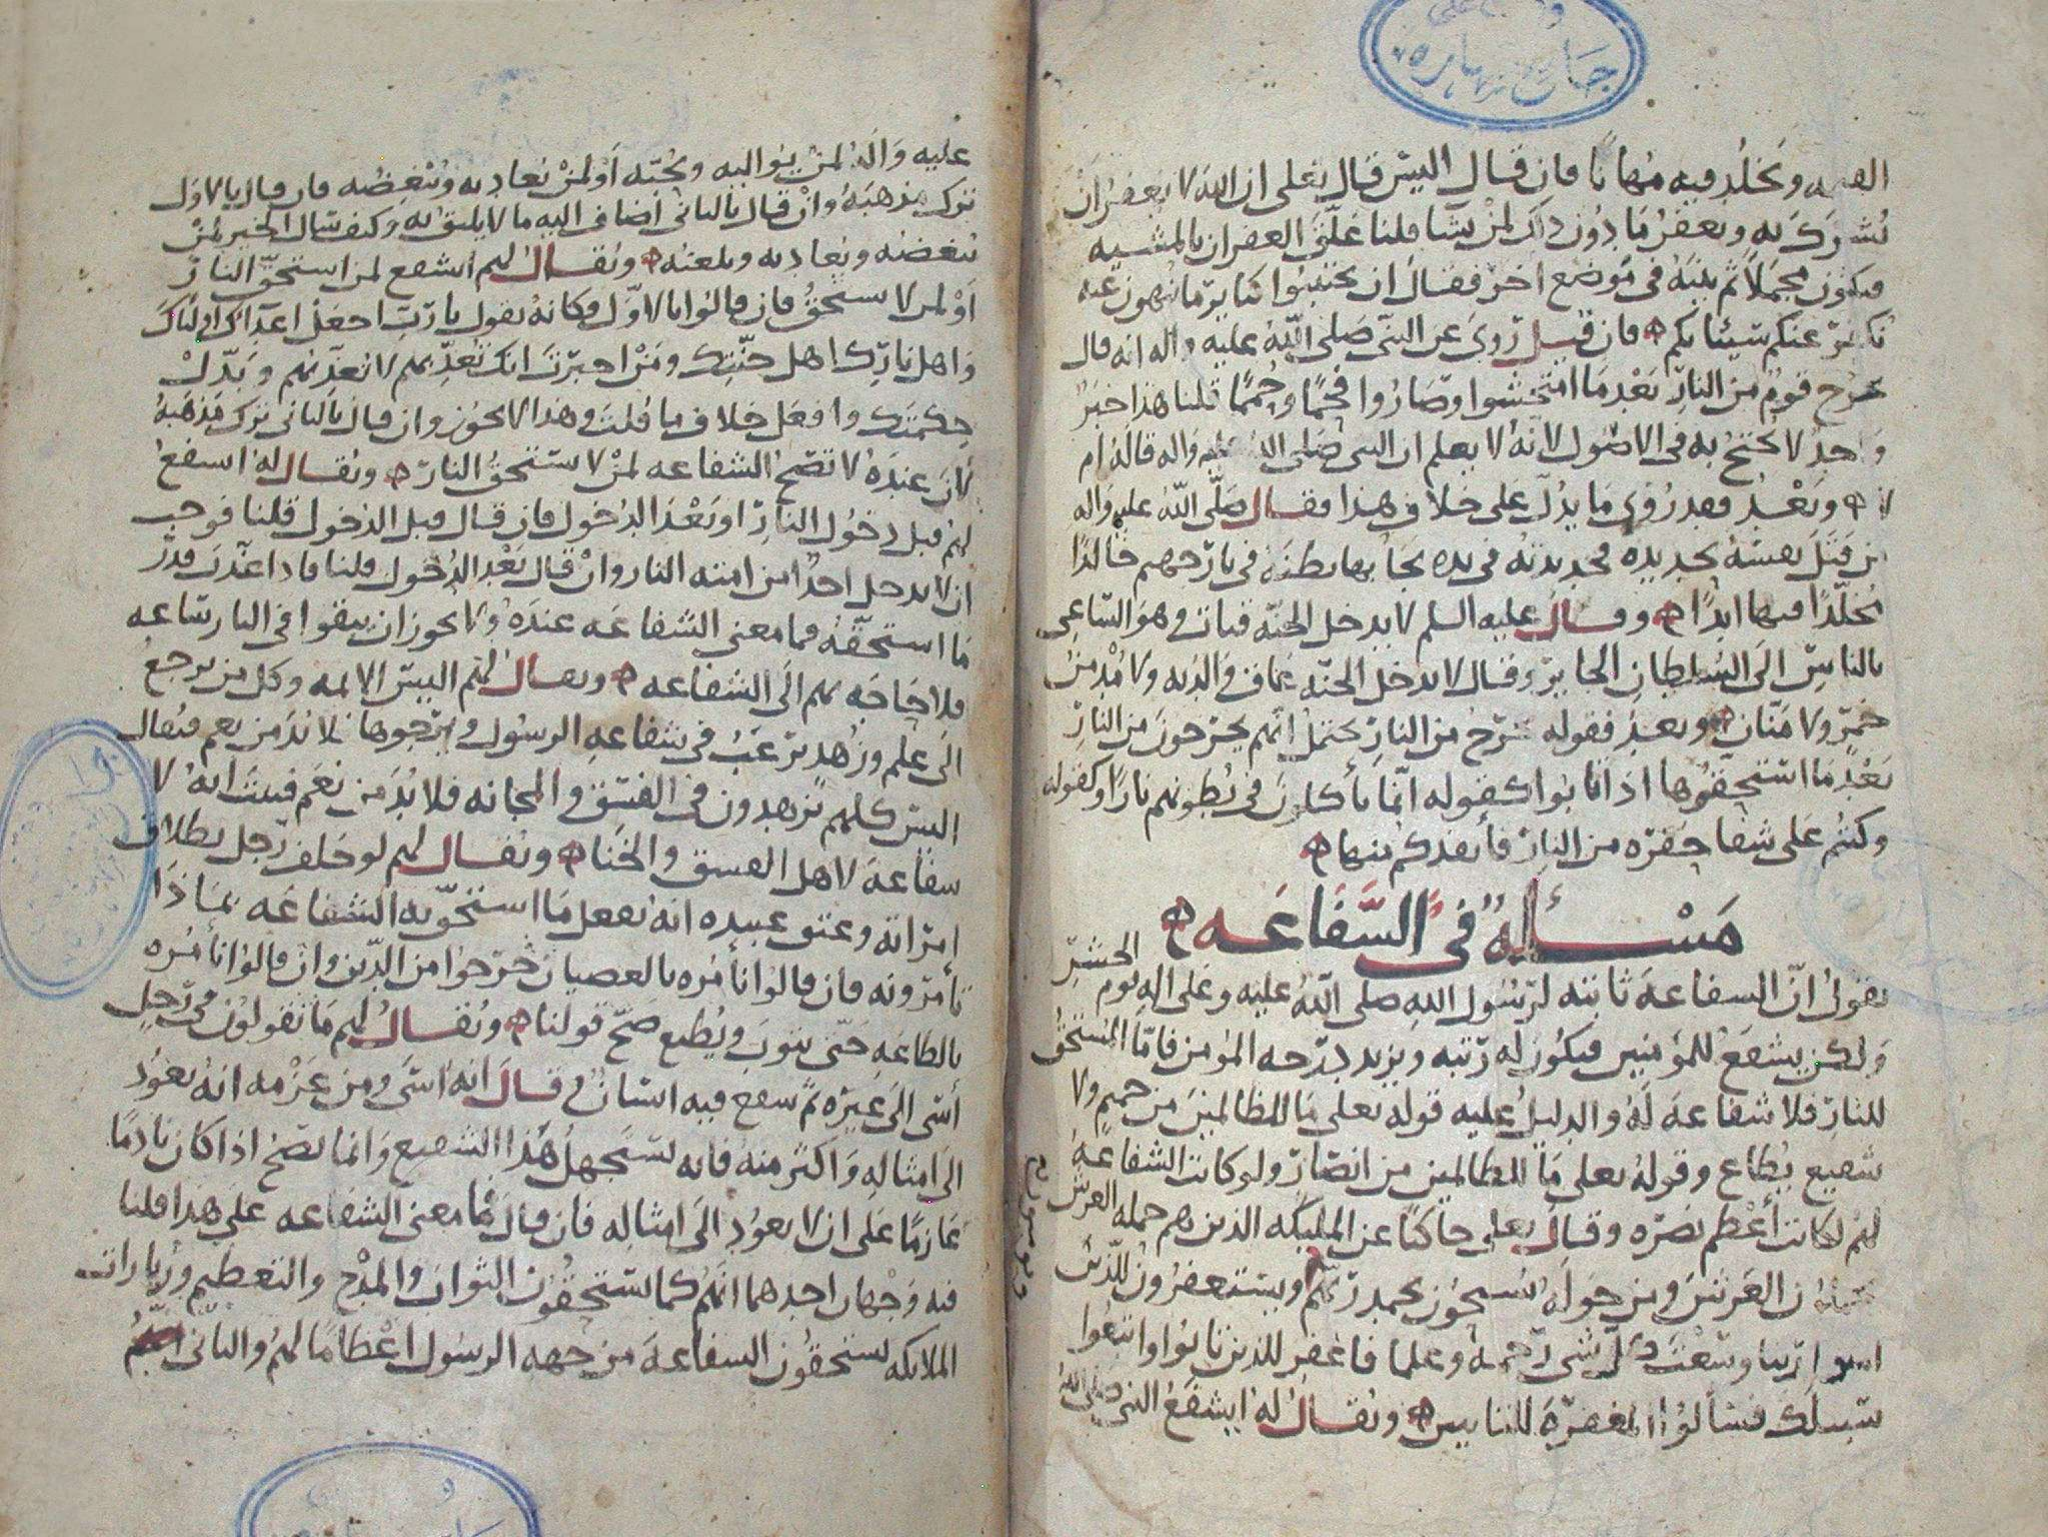 ويخلد فيه مهانا فان قال اليس قال تعلى ان الله لا يغفر ان
يشرك به ويغفر ما دون ذلك لمن يشا قلنا علق الغفران بالمشيه
فيكون مجملا ثم بينه في موضع اخر فقال ان تجتنبوا كباير ما تنهون عنه
نكفر عنكم سيئاتكم فان قيل روي عن النبي صلى الله عليه واله انه قال
يخرج قوم من النار بعد ما امتحشوا وصاروا فحما وحمما قلنا هذا خبر
واحد لا يحتج به في الاصول لانه لا يعلم ان النبي صلى الله عليه واله قاله ام
لا وبعد فقد روي ما يدل على خلاف هذا فقال صلى الله عليه واله
من قتل نفسه بحديده فحديدته في يده يجا بها بطنه في نار جهنم خالدا
مخلدا فيها ابدا وقال عليه السلم لا يدخل الجنه قتات وهو الساعي
بالناس الى السلطان الجاير وقال لا يدخل الجنه عاق والديه ولا مدمن
خمر ولا منان وبعد فقوله يخرج من النار يحتمل انهم يخرجون من النار
بعد ما استحقوها اذا تابوا كقوله انما يأكلون في بطونهم نارا وكقوله
وكنتم على شفا حفره من النار فأنقذكم منها
مسأله في الشفاعه
نقول ان الشفاعه ثابته لرسول الله صلى الله عليه وعلى اله يوم الحشر
ولكن يشفع للمؤمنين فيكون له رتبه ويزيد درجه المؤمن فاما المستحق
للنار فلا شفاعه له والدليل عليه قوله تعلى ما للظالمين من حميم ولا
شفيع يطاع وقوله تعلى ما للظالمين من انصار ولو كانت الشفاعه
لهم لكانت أعظم نصره وقال تعلى حاكيا عن المليكه الذين هم حمله العرش
يحملون العرش ومن حوله يسبحون بحمد ربهم ويستغفرون للذين
امنوا ربنا وسعت كل شي رحمه وعلما فاغفر للذين تابوا واتبعوا
سبيلك فسألوا المغفره للتايبين ويقال له ايشفع النبي صلى الله
عليه واله لمن يواليه ويحبه أو لمن يعاديه ويبغضه فان قال بالاول
ترك مذهبه وان قال بالثاني أضاف اليه ما لا يليق به وكيف سال الخير لمن
يبغضه ويعاديه ويلعنه ويقال لهم ايشفع لمن استحق النار
أو لمن لا يستحق فان قالوا بالاول فكانه يقول يا رب اجعل اعداك اولياك
واهل نارك اهل جنتك ومن اخبرت انك تعذبهم لا تعذبهم وبدل
حكمتك وافعل خلاف ما قلت وهذا لا يجوز وان قال بالثاني ترك مذهبه
لان عنده لا تصح الشفاعه لمن لا يستحق النار ويقال له ايشفع
لهم قبل دخول النار او بعد الدخول فان قال قبل الدخول قلنا فوجب
ان لا يدخل احدا من امته النار وان قال بعد الدخول قلنا فاذا عذب قدر
ما استحقه فما معنى الشفاعه عنده ولا يجوز ان يبقوا في النار ساعه
فلا حاجه بهم الى الشفاعه ويقال لهم اليس الايمه وكل من يرجع
الى علم وزهد يرغب في شفاعه الرسول ويرجوها فلا بد من نعم فيقال
اليس كلهم يزهدون في الفسق والمجانه فلا بد من نعم فيثبت انه لا
شفاعه لاهل الفسق والخنا ويقال لهم لو حلف رجل بطلاق
امراته وعتق عبيده انه يفعل ما استحق به الشفاعه بماذا
تأمرونه فان قالوا نأمره بالعصيان خرجوا من الدين وان قالوا نأمره
بالطاعه حتى يتوب ويطيع صح قولنا ويقال لهم ما تقولون في رجل
أسى الى غيره ثم شفع فيه انسان وقال انه اسى ومن عزمه انه يعود
الى امثاله واكثر منه فانه يستجهل هذا الشفيع وانما يصح اذا كان نادما
عازما على ان لا يعود الى امثاله فان قال فما معنى الشفاعه على هذا قلنا
فيه وجهان احدهما انهم كما يستحقون الثواب والمدح والتعظيم وزيارات
الملايكه يستحقون الشفاعه من جهه الرسول اعظاما لهم والثاني